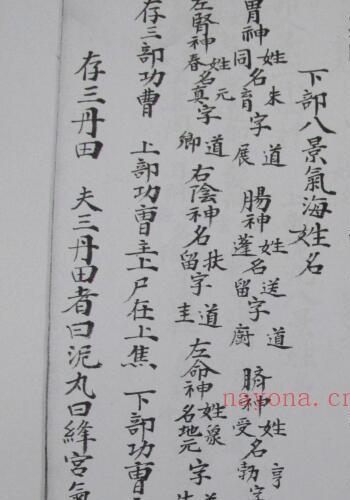 下部八景氣海姓名
胃神姓未名同育字道展 腸神姓送名蓬留字道廚 臍神姓亨名受勃字
左腎神姓元名春真字道卿 右陰神名扶留字道圭 左命神姓 名地元字道
存三部功曹 上部功曹主上尸在上焦 下部功曹
存三丹田 夫三丹田者曰泥丸曰絳宮氣
nayona.c